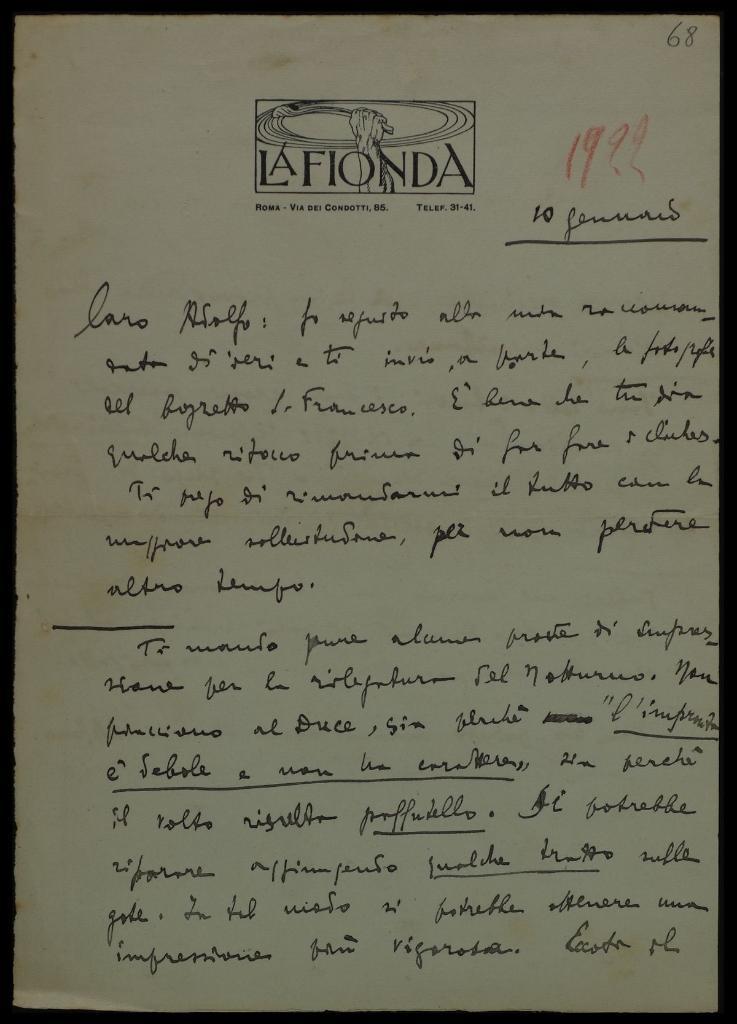 68
LA FIONDA
ROMA - VIA DEI CONDOTTI, 85. TELEF. 31-41.
1922
10 gennaio
Caro Adolfo: fo seguito alla mia raccoman-
data di ieri e ti invio, a parte, la fotografia
del bozzetto S. Francesco. È bene che tu dia
qualche ritocco prima di far fare i clichés.
Ti prego di rimandarmi il tutto con la
maggiore sollecitudine, per non perdere
altro tempo.
Ti mando pure alcune prove di impres-
sione per la rilegatura del Notturno. Non
piacciono al Duce, sia perché "l'impronta
è debole e non ha carattere", sia perché
il volto risulta paffutello. Si potrebbe
riparare aggiungendo qualche tratto sulle
gote. In tal modo si potrebbe ottenere una
impressione più vigorosa. Eccoti il